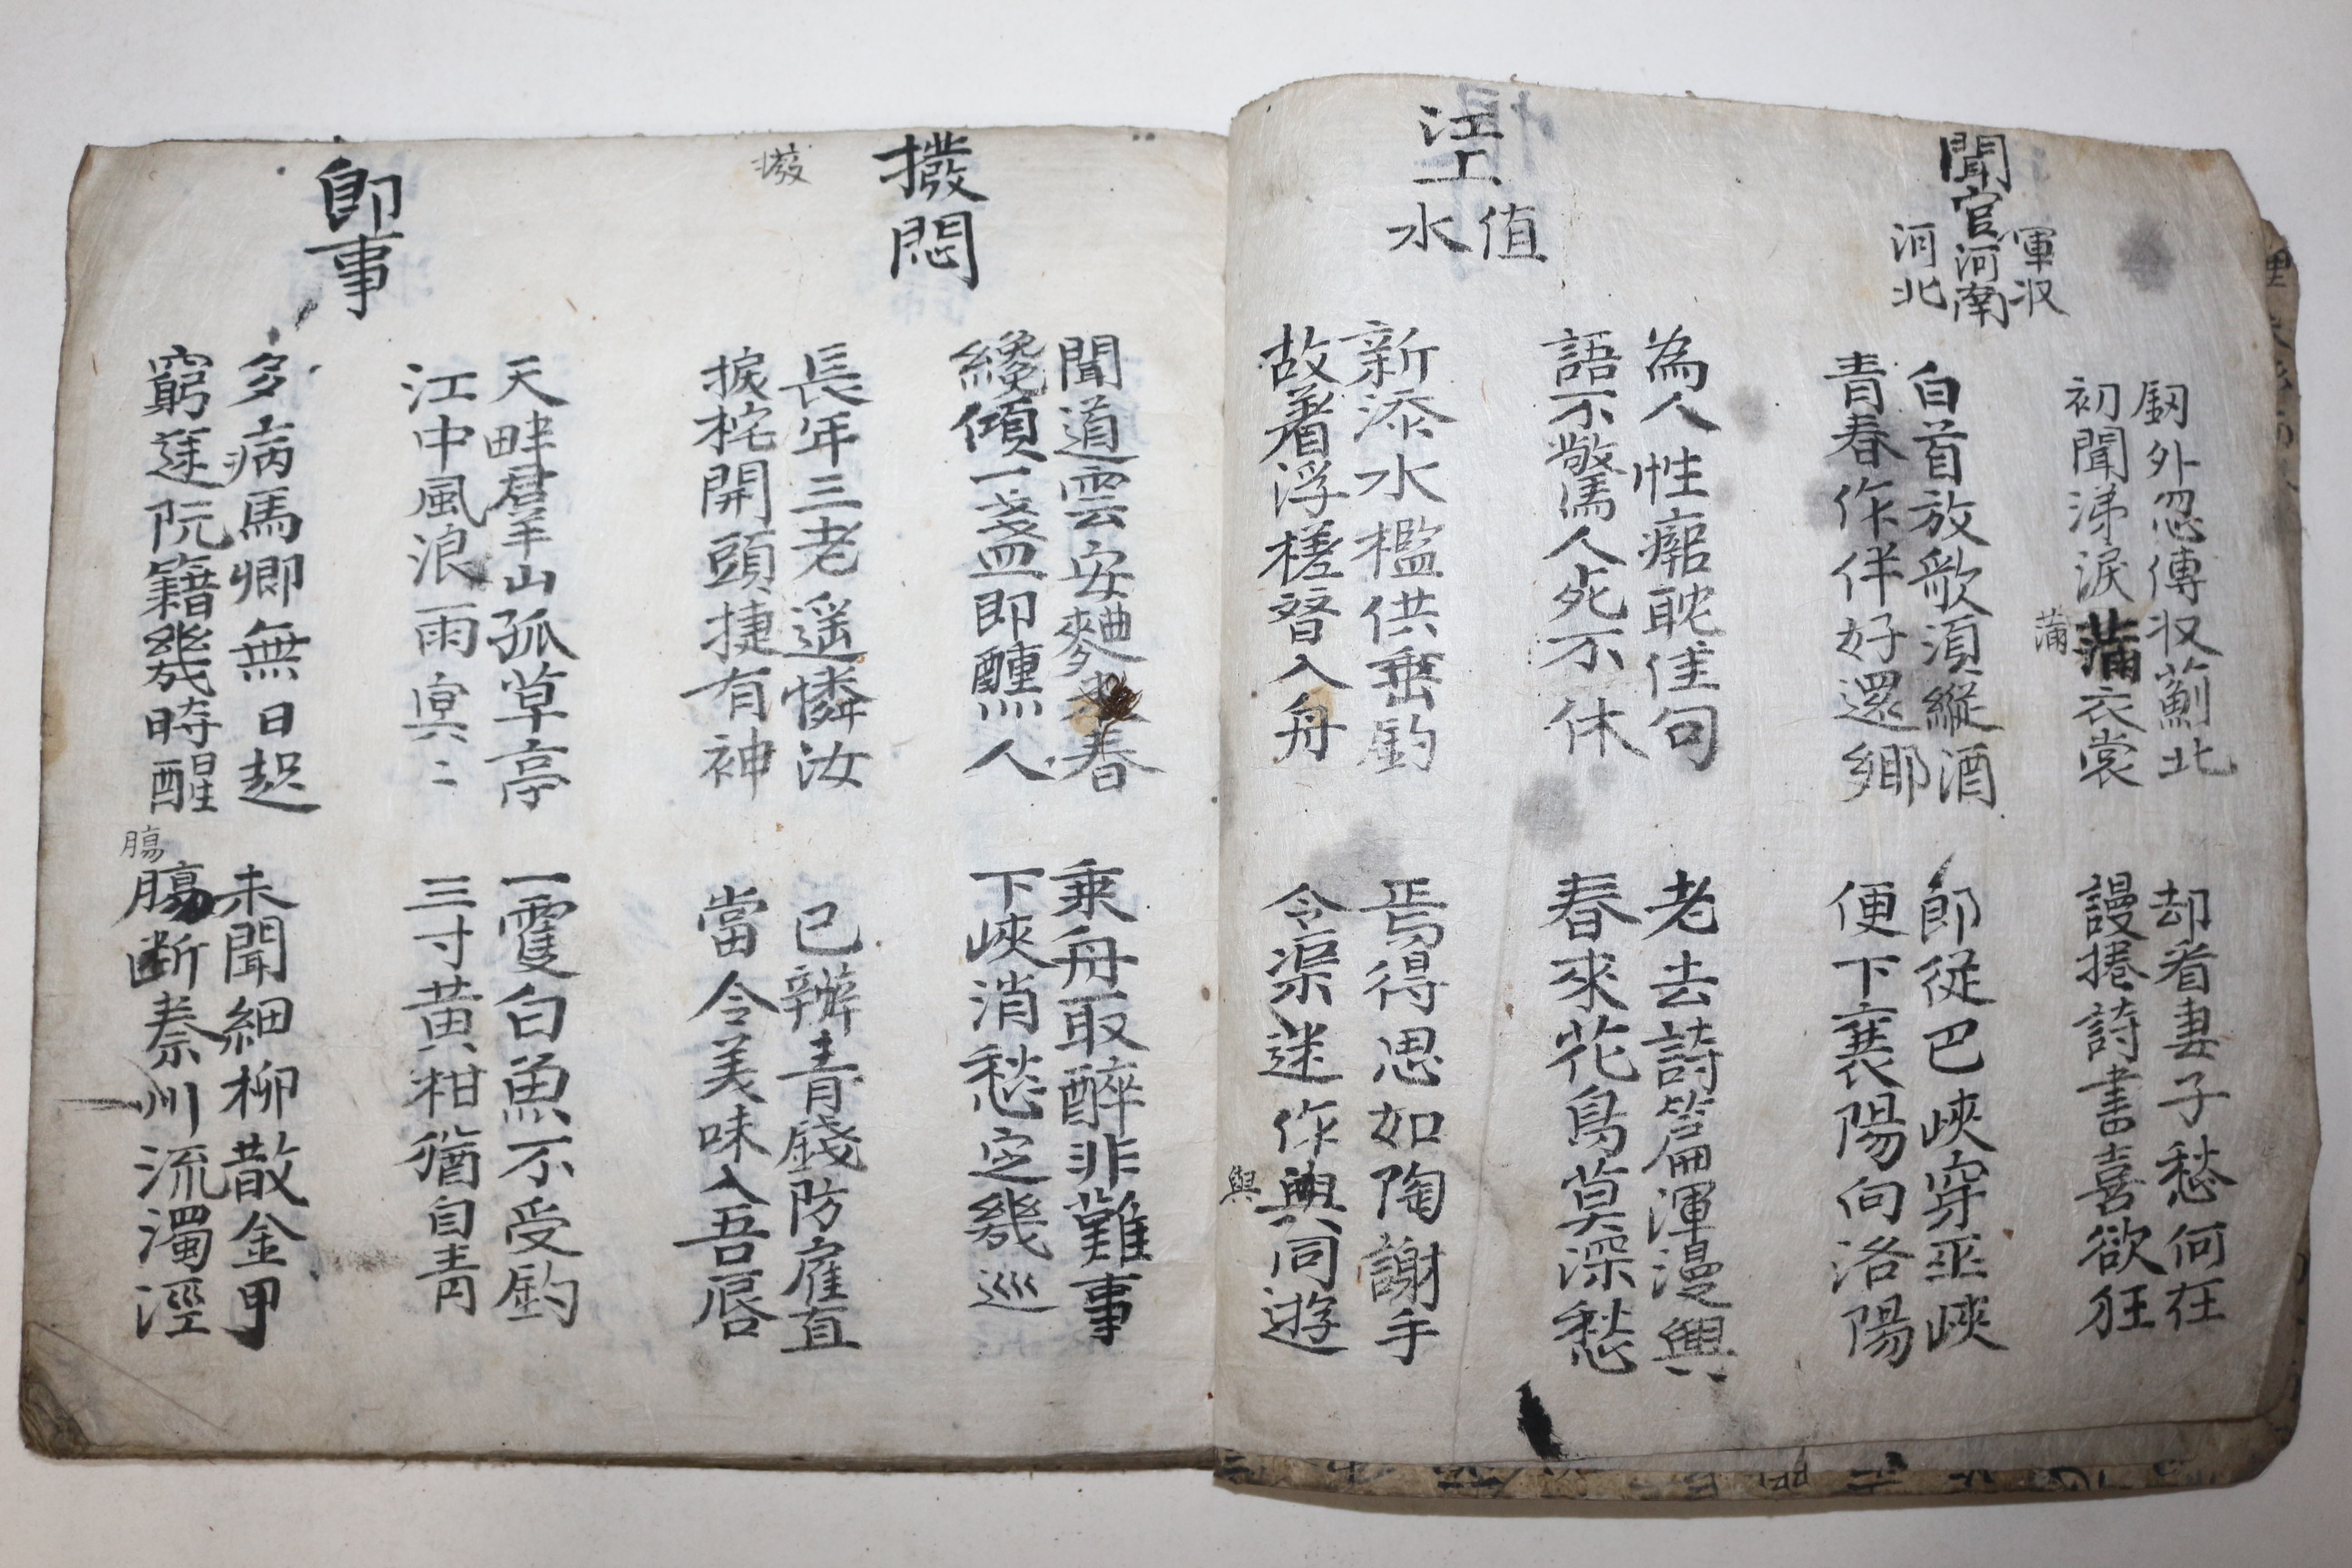 聞官軍収河南河北
釰外忽傳収薊北
初聞涕淚滿衣裳
滿
却看妻子愁何在
謾捲詩書喜欲狂
白首放歌須縱酒
青春作伴好還鄉
即從巴峽穿巫峽
便下襄陽向洛陽
江上值水
為人性癖耽佳句
語不驚人死不休
老去詩篇渾漫興
春來花鳥莫深愁
新添水檻供垂釣
故着浮槎替入舟
焉得思如陶謝手
令渠述作與同遊
與
撥悶
撥
聞道雲安麯春
纔傾一盞即醺人
乘舟取醉非難事
下峽消愁定幾巡
長年三老遥憐汝
捩柁開頭捷有神
已辦青錢防雇直
當令美味入吾唇
即事
天畔羣山孤草亭
江中風浪雨冥〻
一雙白魚不受釣
三寸黃柑猶自青
多病馬卿無日起
窮途阮籍幾時醒
未聞細柳散金甲
腸断秦川流濁涇
腸